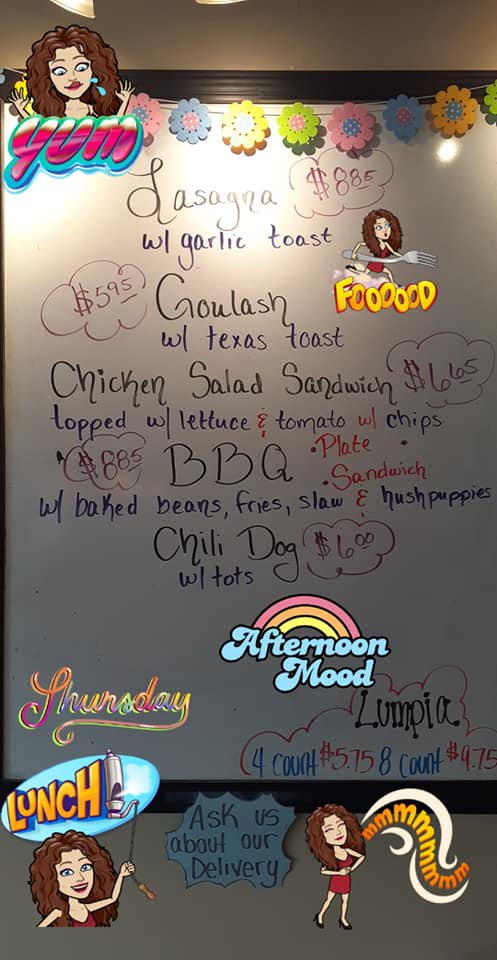 YUM
Lasagna $8.85
w/ garlic toast
FOOOOOD
$5.95 Goulash
w/ texas toast
Chicken Salad Sandwich $6.65
topped w/ lettuce & tomato w/ chips
$8.85 BBQ • Plate •
• Sandwich
w/ baked beans, fries, slaw & hushpuppies
Chili Dog $6.00
w/ tots
Afternoon
Mood
Thursday
Lumpia.
4 count $5.75 8 count $9.75
LUNCH!
Ask us
about our
Delivery
mmmmmmmm